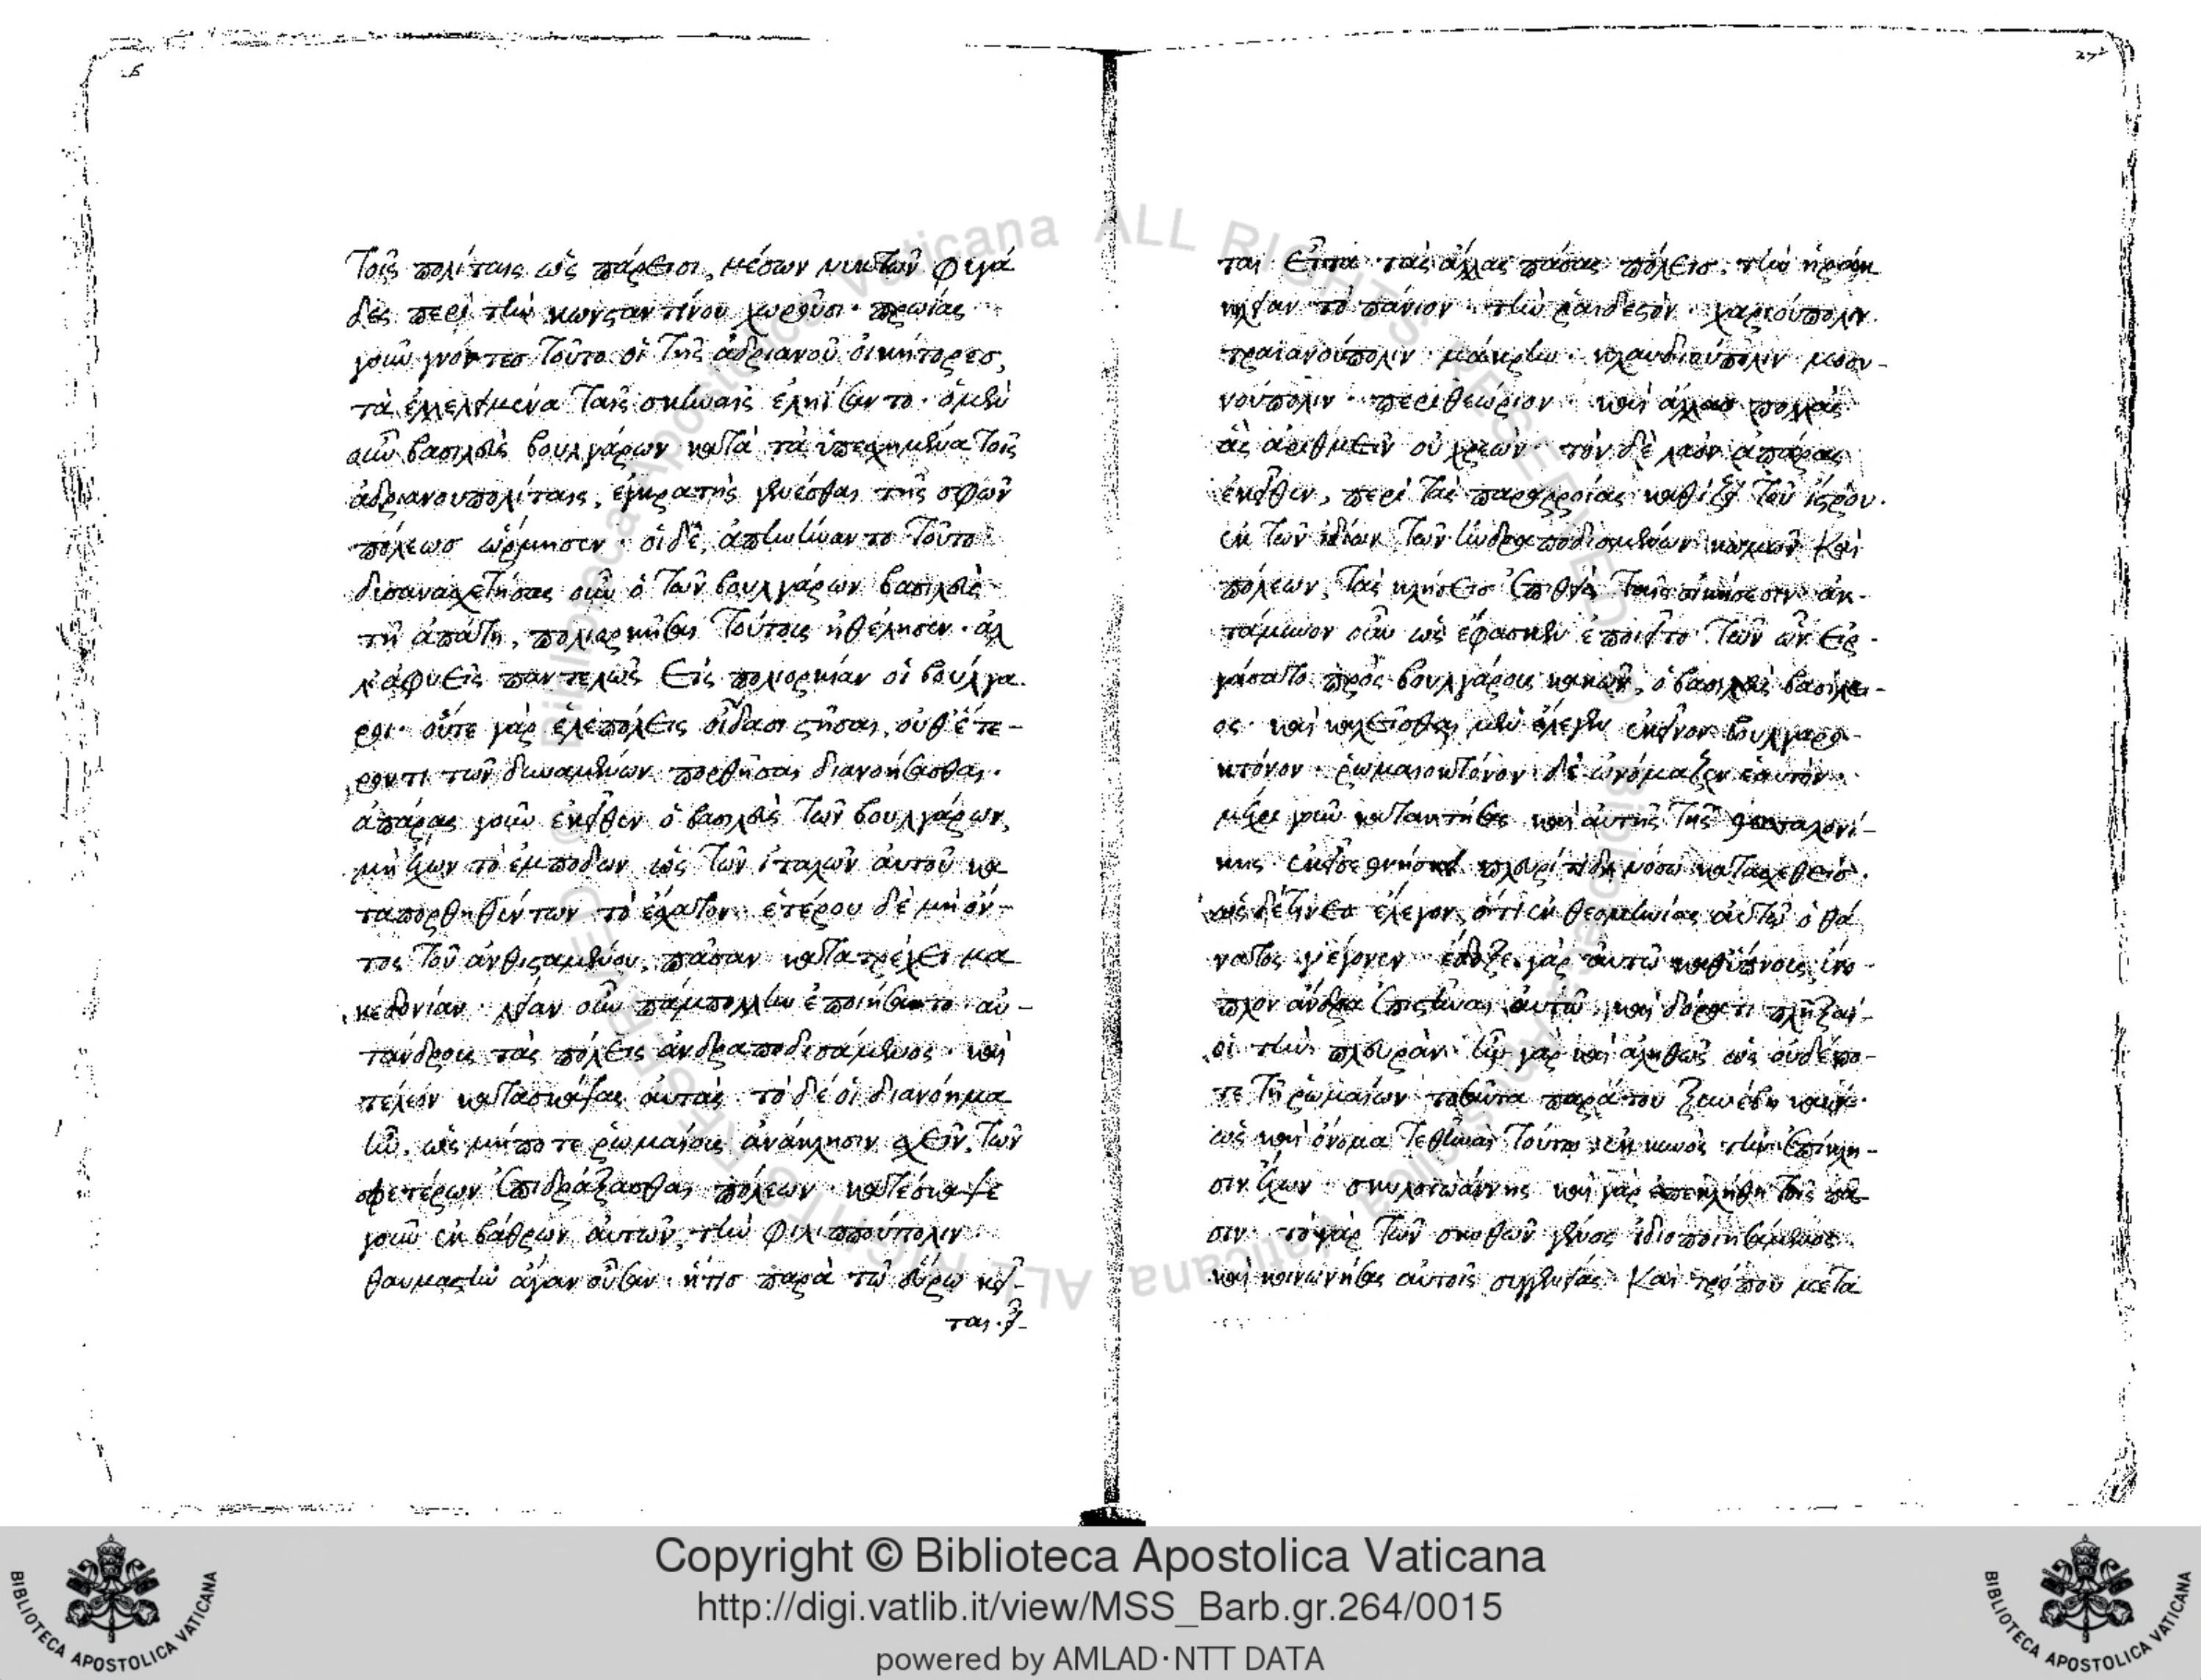 26
τοῖς πολίταις ὡς πάρεισι, μέσων νυκτῶν φυγά
δες περὶ τὴν κωνσταντίνου χωροῦσι· πρωίας
γοῦν γνόντες τοῦτο οἱ τῆς ἀδριανοῦ οἰκήτορες,
τὰ ἐλλελειμμένα ταῖς σκηναῖς ἐληίσαντο· ὁ μὲν
οὖν βασιλεὺς βουλγάρων κατὰ τὰ ὑπεσχημένα τοῖς
ἀδριανουπολίταις, ἐγκρατὴς γενέσθαι τῆς σφῶν
πόλεως ὥρμησεν· οἱ δὲ, ἀπηνήναντο τοῦτο·
δυσανασχετήσας οὖν ὁ τῶν βουλγάρων βασιλεὺς
τῇ ἀπάτῃ, πολιορκῆσαι τούτους ἠθέλησεν· ἀλ
λ' ἀφυεῖς παντελῶς εἰς πολιορκίαν οἱ βούλγα
ροι· οὔτε γὰρ ἑλεπόλεις οἴδασι στῆσαι, οὐθ' ἕτε-
ρόν τι τῶν δυναμένων πορθῆσαι διανοήσασθαι·
ἀπάρας γοῦν ἐκεῖθεν ὁ βασιλεὺς τῶν βουλγάρων,
μὴ ἔχων τὸ ἐμποδὼν ὡς τῶν ἰταλῶν αὐτοῦ κα
ταπορθηθέντων τὸ ἔσχατον· ἑτέρου δὲ μὴ ὄν-
τος τοῦ ἀνθισταμένου, πᾶσαν κατατρέχει μα
κεδονίαν· λείαν οὖν παμπόλλην ἐποιήσατο αὐ-
τάνδρους τὰς πόλεις ἀνδραποδισάμενος· καὶ
τέλεον κατασκάψας αὐτάς· τὸ δέ οἱ διανόημα
ἦν, ὡς μήποτε ῥωμαίους ἀνάκλησιν σχεῖν, τῶν
σφετέρων ἐπιδράξασθαι πόλεων· κατέσκαψε
γοῦν ἐκ βάθρων αὐτῶν, τὴν φιλιππούπολιν·
θαυμαστὴν ἄγαν οὖσαν· ἥτις παρὰ τῷ εὔρω κεῖ-
ται·
27
ται εἶτα τὰς ἄλλας πάσας πόλεις· τὴν ἡράκ
λειαν· τὸ πάνιον· τὴν ῥαιδεστόν· χαριούπολιν·
τραιανούπολιν· μάκρην· κλαυδιούπολιν· μοσυ-
νούπολιν· περιθεώριον· καὶ ἄλλας πολλὰς
ἃς ἀριθμεῖν οὐ χρεών· τὸν δὲ λαὸν ἀπάρας
ἐκεῖθεν, περὶ τὰς παραρροίας καθίζει τοῦ ἴστρου·
ἐκ τῶν ἰδίων τῶν ἠνδραποδισμένων κωμῶν καὶ
πόλεων, τὰς κλήσεις ἐπιθεὶς ταῖς οἰκήσεσιν· ἀν-
τάμυναν οὖν ὡς ἔφασκεν ἐποιεῖτο τῶν ὧν εἰρ-
γάσατο πρὸς βουλγάρους κακῶν, ὁ βασιλεὺς βασίλει-
ος· καὶ καλεῖσθαι μὲν ἔλεγεν ἐκεῖνον βουλγαρο-
κτόνον· ῥωμαιοκτόνον δὲ ὠνόμαζεν ἑαυτόν·
μέχρι γοῦν καταντήσας καὶ αὐτῆς τῆς θεσσαλονί-
κης ἐκεῖσε θνήσκει πλευρίτιδι νόσῳ κατασχεθείς·
ὡς δέ τινες ἔλεγον, ὅτι ἐκ θεομηνίας αὐτῷ ὁ θά
νατος γέγονεν· ἔδοξε γὰρ αὐτῷ καθ' ὕπνους ἔνο-
πλον ἄνδρα ἐπιστῆναι αὐτῷ, καὶ δόρατι πλῆξαί
οἱ τὴν πλευράν· ἦν γὰρ καὶ ἀληθῶς ὡς οὐδέπο-
τε τῇ ῥωμαίων τοσαῦτα παρά του ξυνέβη κακά·
ὡς καὶ ὄνομα τεθῆναι τούτῳ ἐκ κυνὸς τὴν ἐπίκλη-
σιν ἔχων· σκυλοϊωάννης καὶ γὰρ ἐπεκλήθη τοῖς πᾶ
σιν· τὸ γὰρ τῶν σκυθῶν γένος ἰδιοποιησάμενος
καὶ κοινωνήσας αὐτοῖς συγγενείας καὶ τρόπου μετα
Copyright © Biblioteca Apostolica Vaticana
http://digi.vatlib.it/view/MSS_Barb.gr.264/0015
powered by AMLAD·NTT DATA
BIBLIOTECA APOSTOLICA VATICANA
BIBLIOTECA APOSTOLICA VATICANA